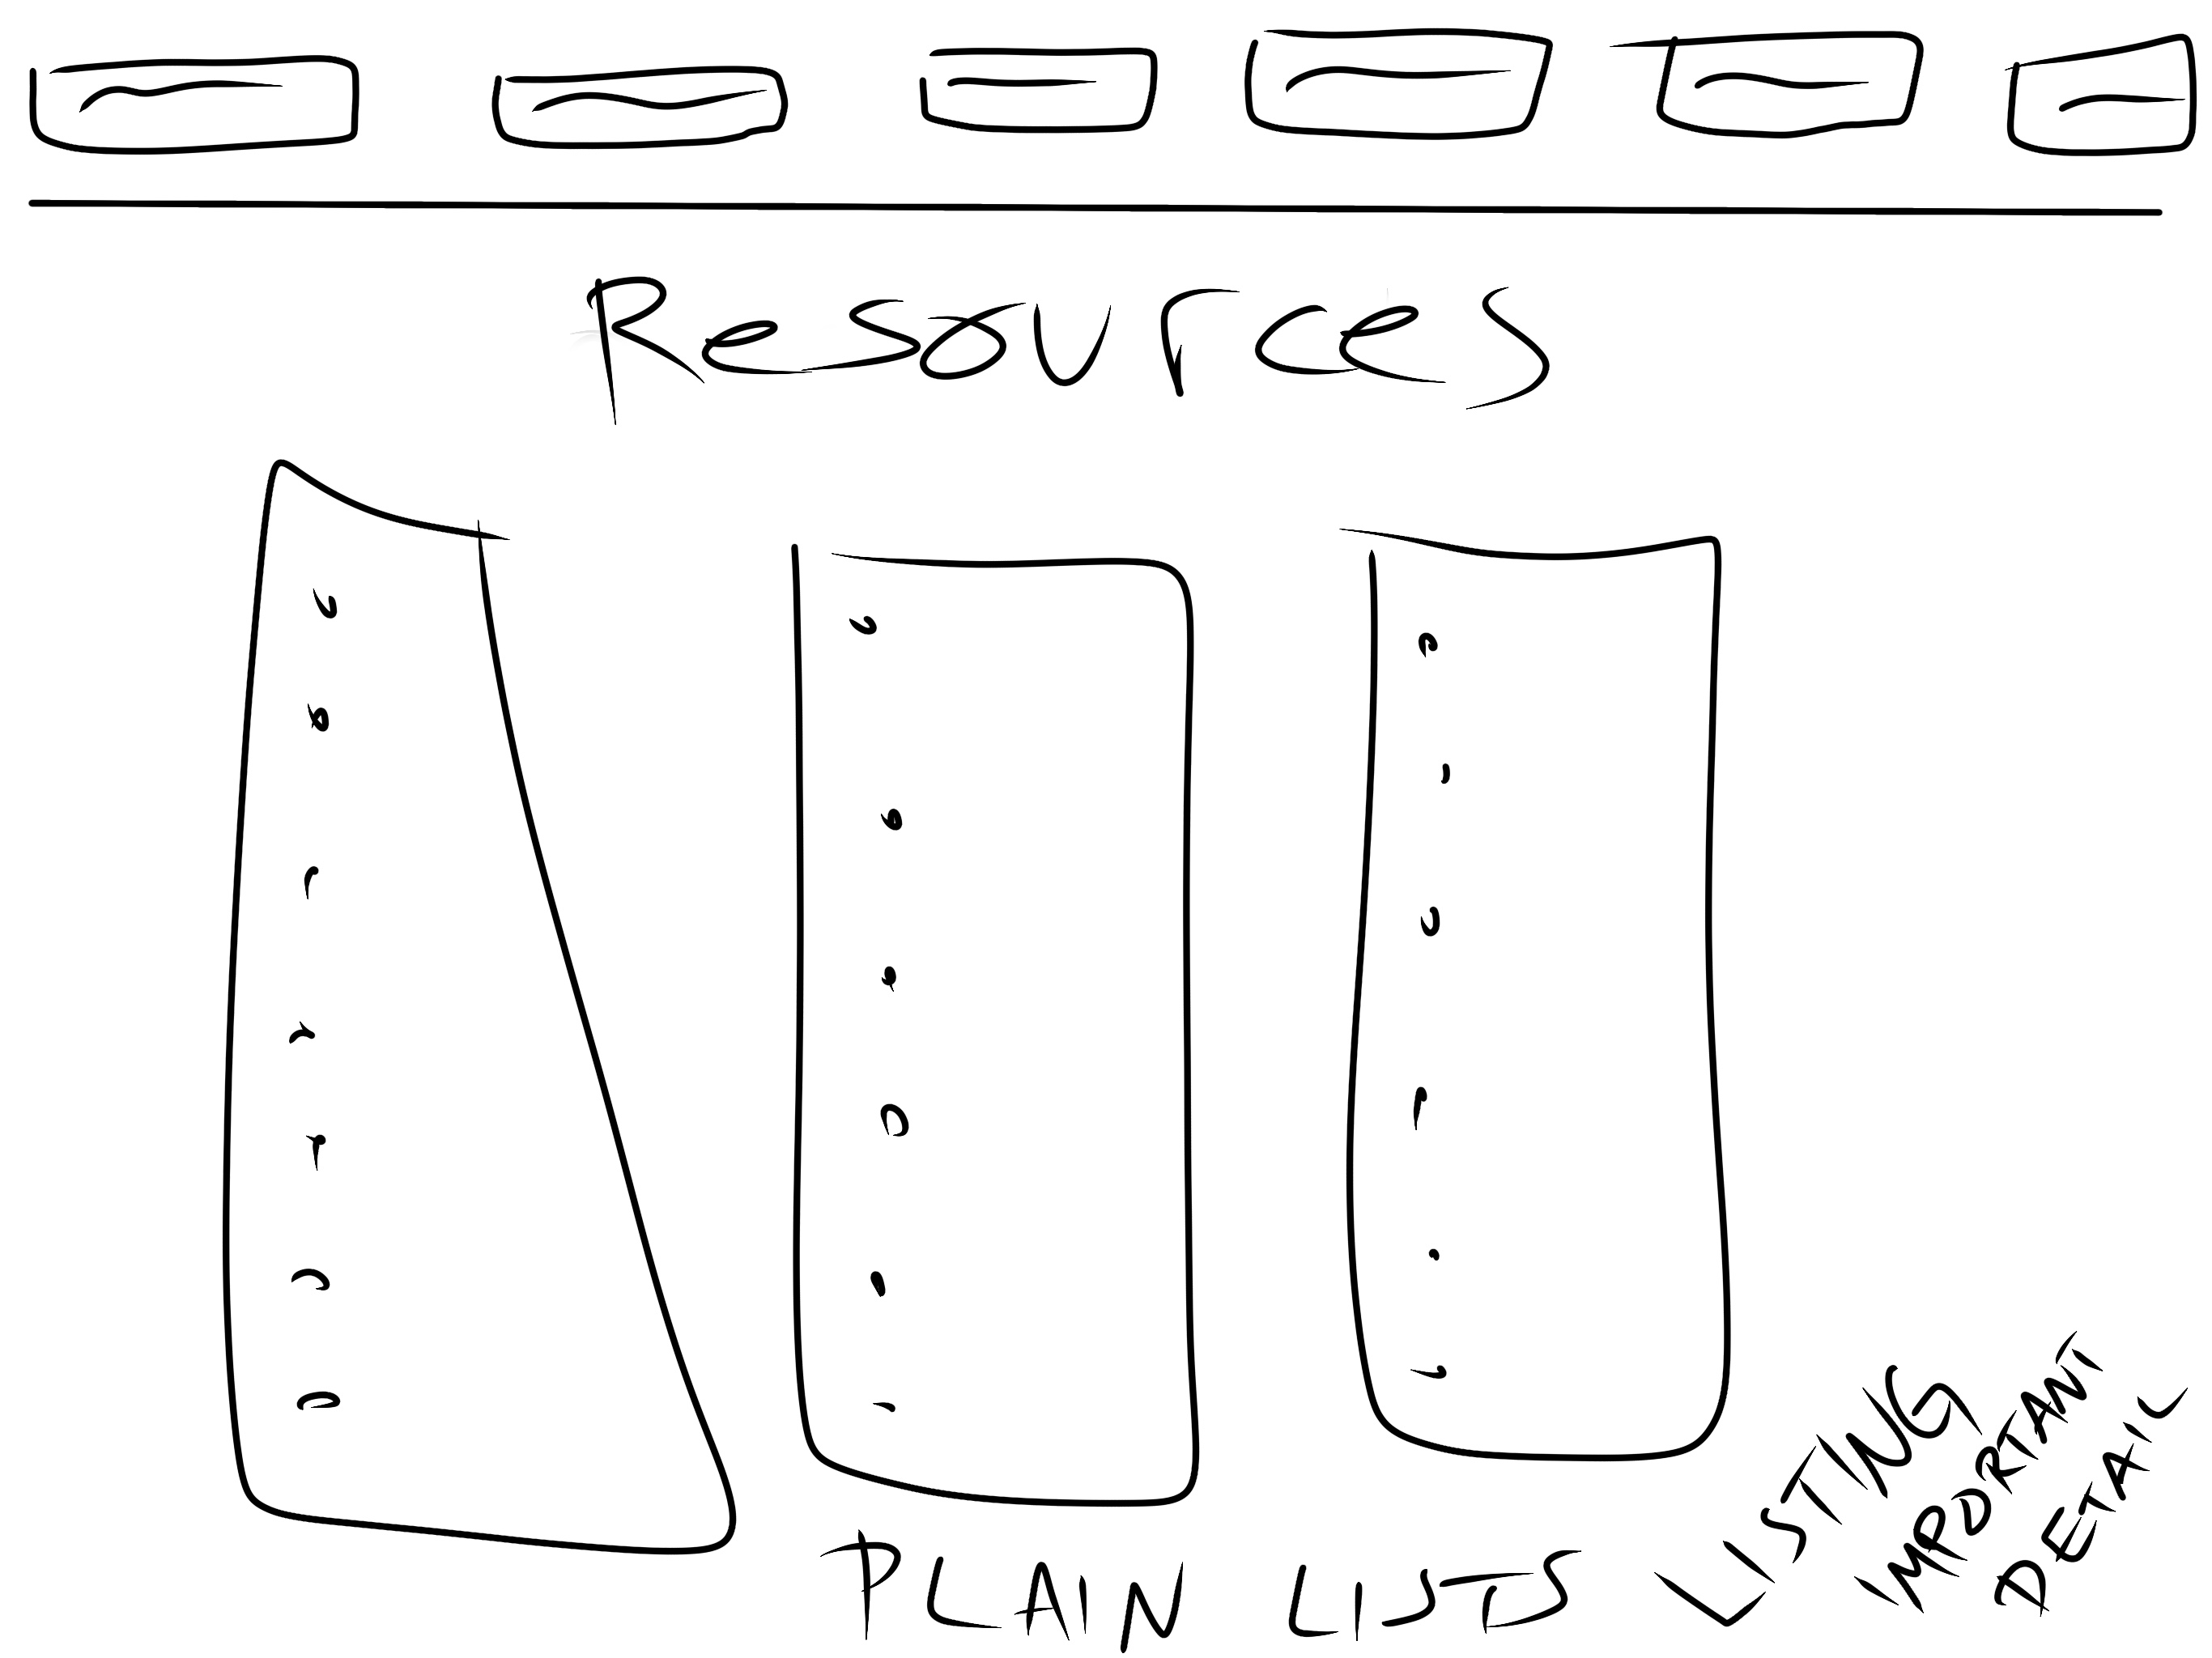 Resources
PLAIN LISTS
LISTING
IMPORTANT
DETAIL